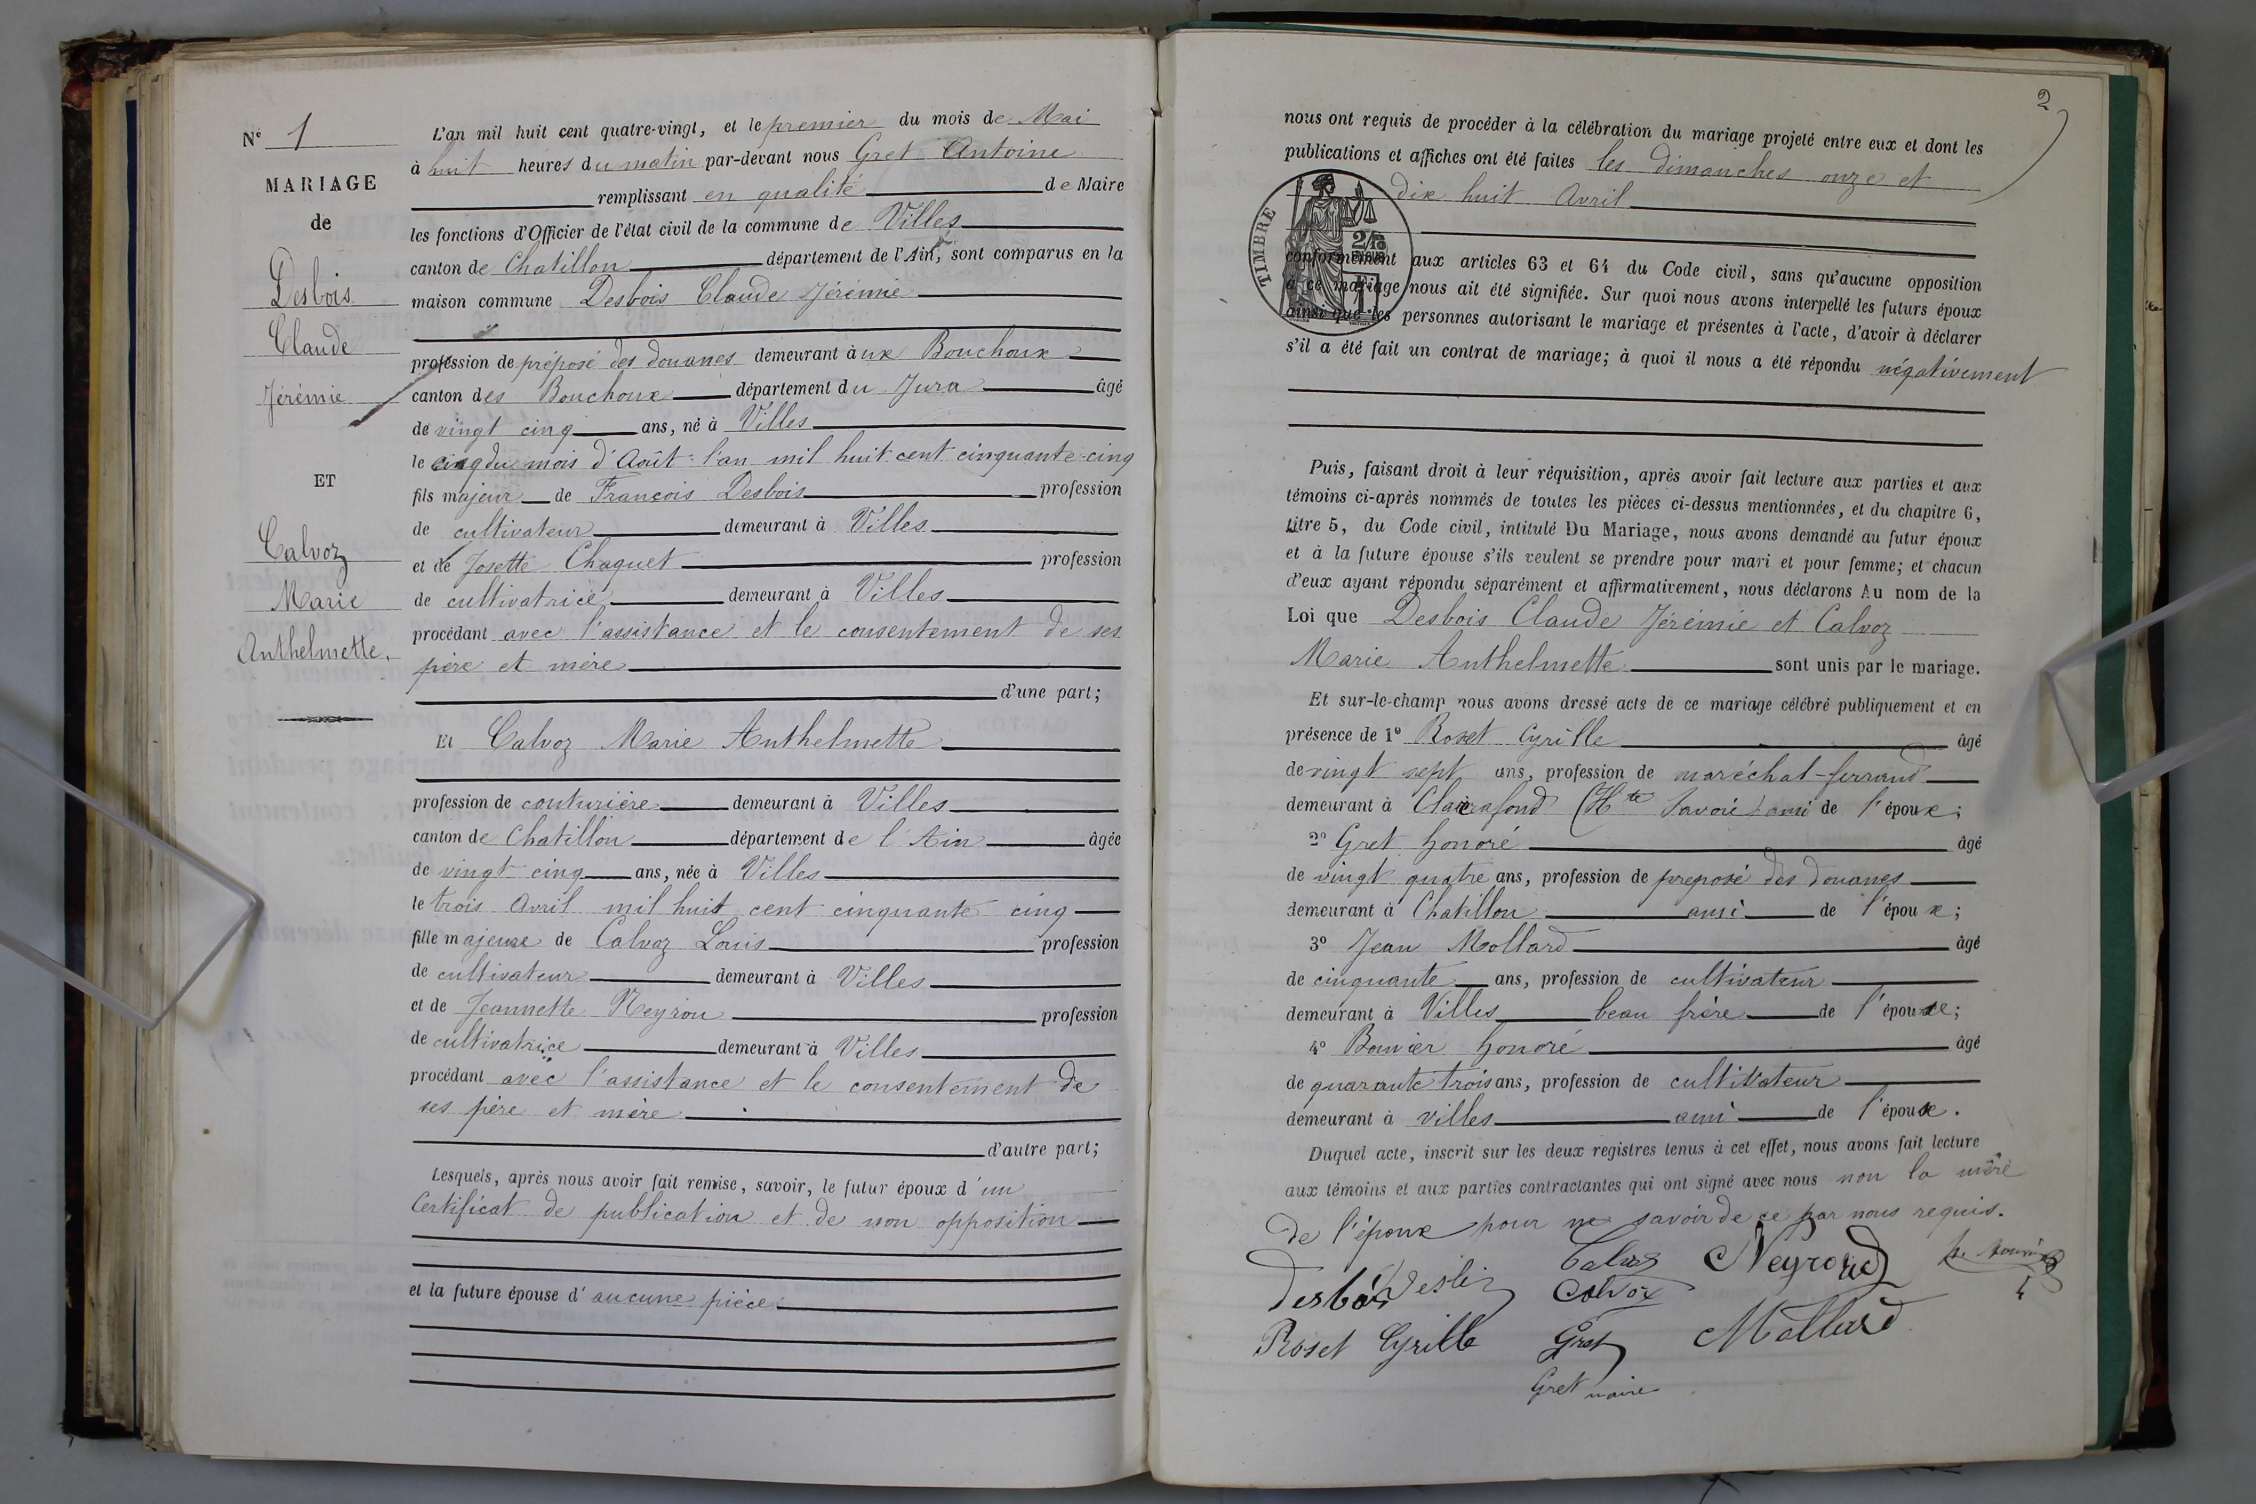 N° 1
MARIAGE
de
Desbois
Claude
Jérémie
ET
Calvoz
Marie
Anthelmette.
L'an mil huit cent quatre-vingt, et le premier du mois de Mai
à huit heures du matin par-devant nous Gret Antoine
remplissant en qualité de Maire
les fonctions d'Officier de l'état civil de la commune de Villes
canton de Chatillon département de l'Ain, sont comparus en la
maison commune Desbois Claude Jérémie
profession de préposé des douanes demeurant à ux Bouchoux
canton des Bouchoux département du Jura âgé
de vingt cinq ans, né à Villes
le cinq du mois d'Août l'an mil huit cent cinquante-cinq
fils majeur de François Desbois profession
de cultivateur demeurant à Villes
et de Josette Chaquet profession
de cultivatrice demeurant à Villes
procédant avec l'assistance et le consentement de ses
père et mère
d'une part;
Et Calvoz Marie Anthelmette
profession de couturière demeurant à Villes
canton de Chatillon département de l'Ain âgée
de vingt cinq ans, née à Villes
le trois Avril mil huit cent cinquante cinq
fille majeure de Calvoz Louis profession
de cultivateur demeurant à Villes
et de Jeannette Neyron profession
de cultivatrice demeurant à Villes
procédant avec l'assistance et le consentement de
ses père et mère
d'autre part;
Lesquels, après nous avoir fait remise, savoir, le futur époux d'un
Certificat de publication et de non opposition
et la future épouse d'aucune pièce
2
nous ont requis de procéder à la célébration du mariage projeté entre eux et dont les
publications et affiches ont été faites les dimanches onze et
dix huit Avril
TIMBRE
conformément aux articles 63 et 64 du Code civil, sans qu'aucune opposition
à ce mariage nous ait été signifiée. Sur quoi nous avons interpellé les futurs époux
ainsi que les personnes autorisant le mariage et présentes à l'acte, d'avoir à déclarer
s'il a été fait un contrat de mariage; à quoi il nous a été répondu négativement
Puis, faisant droit à leur réquisition, après avoir fait lecture aux parties et aux
témoins ci-après nommés de toutes les pièces ci-dessus mentionnées, et du chapitre 6,
titre 5, du Code civil, intitulé Du Mariage, nous avons demandé au futur époux
et à la future épouse s'ils veulent se prendre pour mari et pour femme; et chacun
d'eux ayant répondu séparément et affirmativement, nous déclarons Au nom de la
Loi que Desbois Claude Jérémie et Calvoz
Marie Anthelmette sont unis par le mariage.
Et sur-le-champ nous avons dressé acte de ce mariage célébré publiquement et en
présence de 1° Roset Cyrille âgé
de vingt sept ans, profession de maréchal-ferrand
demeurant à Clairafond (Hte Savoie) ami de l'époux;
2° Gret Honoré âgé
de vingt quatre ans, profession de preposé des douanes
demeurant à Chatillon ami de l'époux;
3° Jean Mollard âgé
de cinquante ans, profession de cultivateur
demeurant à Villes beau frère de l'épouse;
4° Bouvier Honoré âgé
de quarante trois ans, profession de cultivateur
demeurant à Villes ami de l'épouse.
Duquel acte, inscrit sur les deux registres tenus à cet effet, nous avons fait lecture
aux témoins et aux parties contractantes qui ont signé avec nous non la mère
de l'époux pour ne savoir de ce par nous requis.
Desbois Calvoz Neyroud
Calvoz
Roset Cyrille Gret Mollard
Gret maire